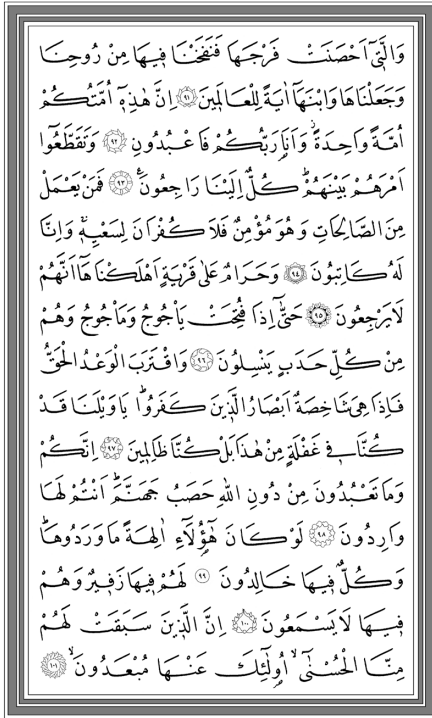 وَالَّت۪ٓي اَحْصَنَتْ فَرْجَهَا فَنَفَخْنَا ف۪يهَا مِنْ رُوحِنَا
وَجَعَلْنَاهَا وَابْنَهَٓا اٰيَةً لِلْعَالَم۪ينَ ﴿٩١﴾ اِنَّ هٰذِه۪ٓ اُمَّتُكُمْ
اُمَّةً وَاحِدَةًۘ وَاَنَا۬ رَبُّكُمْ فَاعْبُدُونِ ﴿٩٢﴾ وَتَقَطَّعُٓوا
اَمْرَهُمْ بَيْنَهُمْۜ كُلٌّ اِلَيْنَا رَاجِعُونَ۟ ﴿٩٣﴾ فَمَنْ يَعْمَلْ
مِنَ الصَّالِحَاتِ وَهُوَ مُؤْمِنٌ فَلَا كُفْرَانَ لِسَعْيِه۪ۚ وَاِنَّا
لَهُ كَاتِبُونَ ﴿٩٤﴾ وَحَرَامٌ عَلٰى قَرْيَةٍ اَهْلَكْنَاهَٓا اَنَّهُمْ
لَا يَرْجِعُونَ ﴿٩٥﴾ حَتّٰٓى اِذَا فُتِحَتْ يَأْجُوجُ وَمَأْجُوجُ وَهُمْ
مِنْ كُلِّ حَدَبٍ يَنْسِلُونَ ﴿٩٦﴾ وَاقْتَرَبَ الْوَعْدُ الْحَقُّ
فَاِذَا هِيَ شَاخِصَةٌ اَبْصَارُ الَّذ۪ينَ كَفَرُواۜ يَا وَيْلَنَا قَدْ
كُنَّا ف۪ي غَفْلَةٍ مِنْ هٰذَا بَلْ كُنَّا ظَالِم۪ينَ ﴿٩٧﴾ اِنَّكُمْ
وَمَا تَعْبُدُونَ مِنْ دُونِ اللّٰهِ حَصَبُ جَهَنَّمَۜ اَنْتُمْ لَهَا
وَارِدُونَ ﴿٩٨﴾ لَوْ كَانَ هٰٓؤُ۬لَٓاءِ اٰلِهَةً مَا وَرَدُوهَاۜ
وَكُلٌّ ف۪يهَا خَالِدُونَ ﴿٩٩﴾ لَهُمْ ف۪يهَا زَف۪يرٌ وَهُمْ
ف۪يهَا لَا يَسْمَعُونَ ﴿١٠٠﴾ اِنَّ الَّذ۪ينَ سَبَقَتْ لَهُمْ
مِنَّا الْحُسْنٰىۙ اُو۬لٰٓئِكَ عَنْهَا مُبْعَدُونَۙ ﴿١٠١﴾